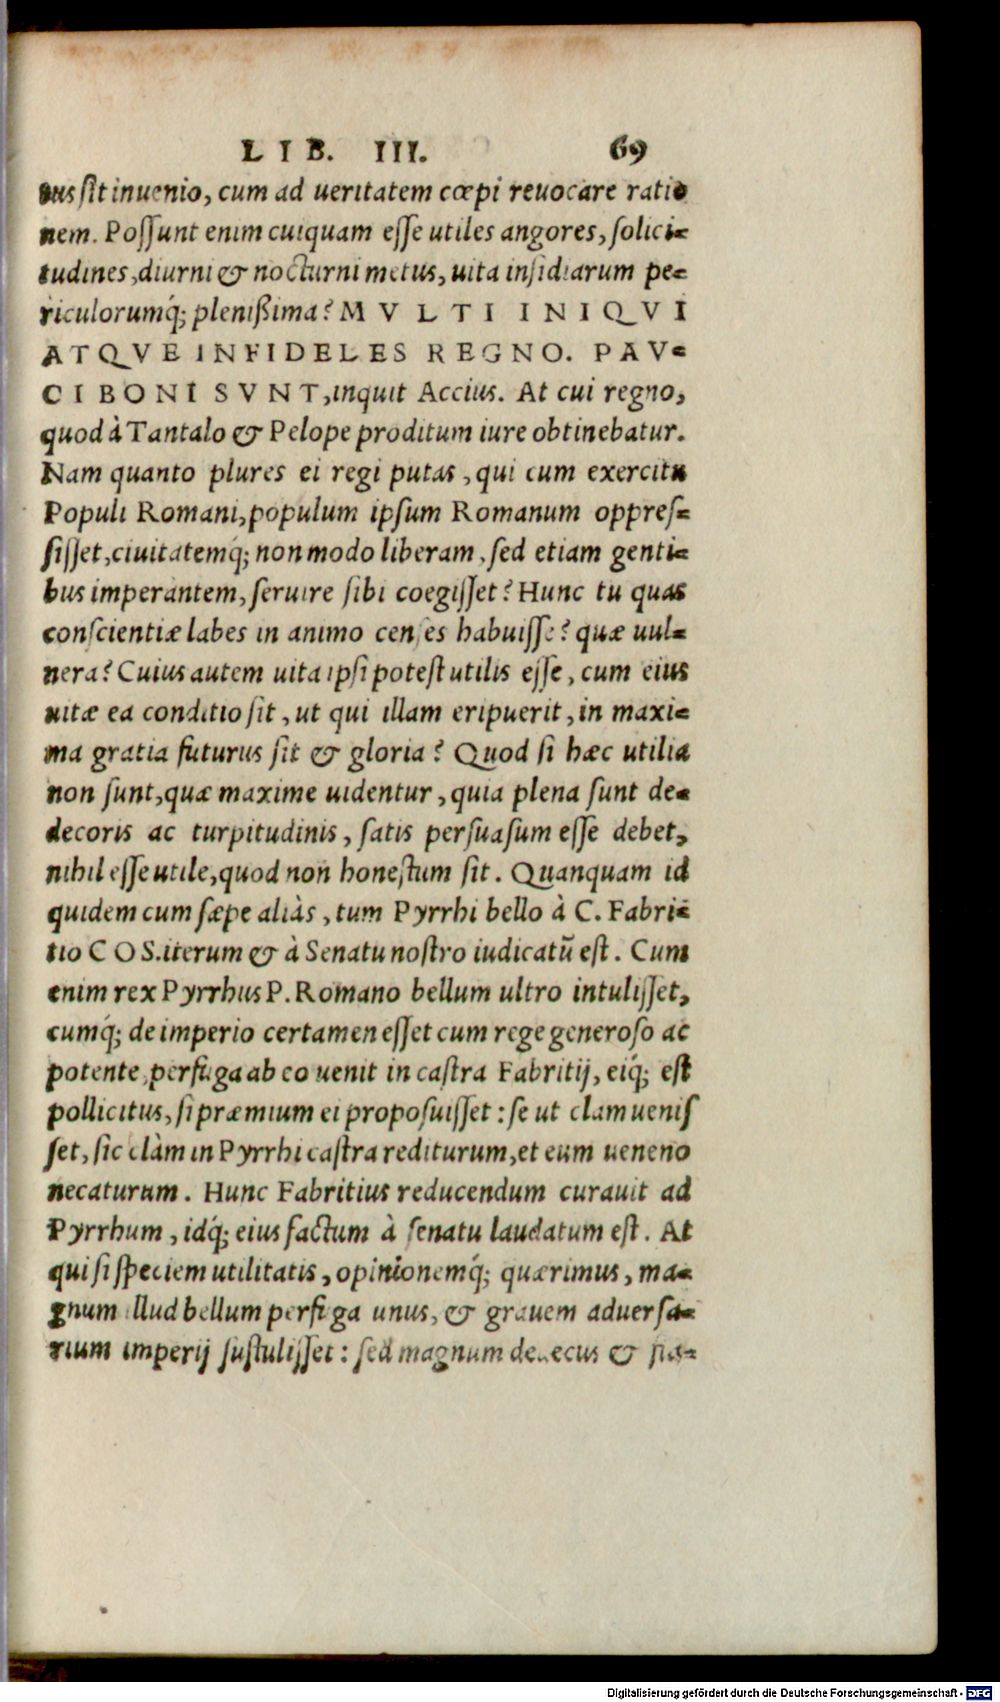 LIB. III. 69
uus ſit inuenio, cum ad ueritatem cœpi reuocare ratio
nem. Poſſunt enim cuiquam eſſe utiles angores, ſolici-
tudines, diurni & nocturni metus, uita inſidiarum pe-
riculorumq́; pleniſsima? MVLTI INIQVI
ATQVE INFIDELES REGNO. PAV-
CI BONI SVNT, inquit Accius. At cui regno,
quod à Tantalo & Pelope proditum iure obtinebatur.
Nam quanto plures ei regi putas, qui cum exercitu
Populi Romani, populum ipſum Romanum oppreſ-
ſiſſet, ciuitatemq́; non modo liberam, ſed etiam genti-
bus imperantem, ſeruire ſibi coegiſſet? Hunc tu quas
conſcientiæ labes in animo cenſes habuiſſe? quæ uul-
nera? Cuius autem uita ipſi poteſt utilis eſſe, cum eius
uitæ ea conditio ſit, ut qui illam eripuerit, in maxi-
ma gratia futurus ſit & gloria? Quod ſi hæc utilia
non ſunt, quæ maxime uidentur, quia plena ſunt de-
decoris ac turpitudinis, ſatis perſuaſum eſſe debet,
nihil eſſe utile, quod non honeſtum ſit. Quanquam id
quidem cum ſæpe aliàs, tum Pyrrhi bello à C. Fabri-
tio COS. iterum & à Senatu noſtro iudicatũ eſt. Cum
enim rex Pyrrhus P. Romano bellum ultro intuliſſet,
cumq́; de imperio certamen eſſet cum rege generoſo ac
potente, perfuga ab eo uenit in caſtra Fabritij, eiq́; eſt
pollicitus, ſi præmium ei propoſuiſſet: ſe ut clam ueniſ
ſet, ſic clàm in Pyrrhi caſtra rediturum, et eum ueneno
necaturum. Hunc Fabritius reducendum curauit ad
Pyrrhum, idq́; eius factum à ſenatu laudatum eſt. At
qui ſi ſpeciem utilitatis, opinionemq́; quærimus, ma-
gnum illud bellum perfuga unus, & grauem aduerſa-
rium imperij ſuſtuliſſet: ſed magnum dedecus & fla-
Digitalisierung gefördert durch die Deutsche Forschungsgemeinschaft - DFG